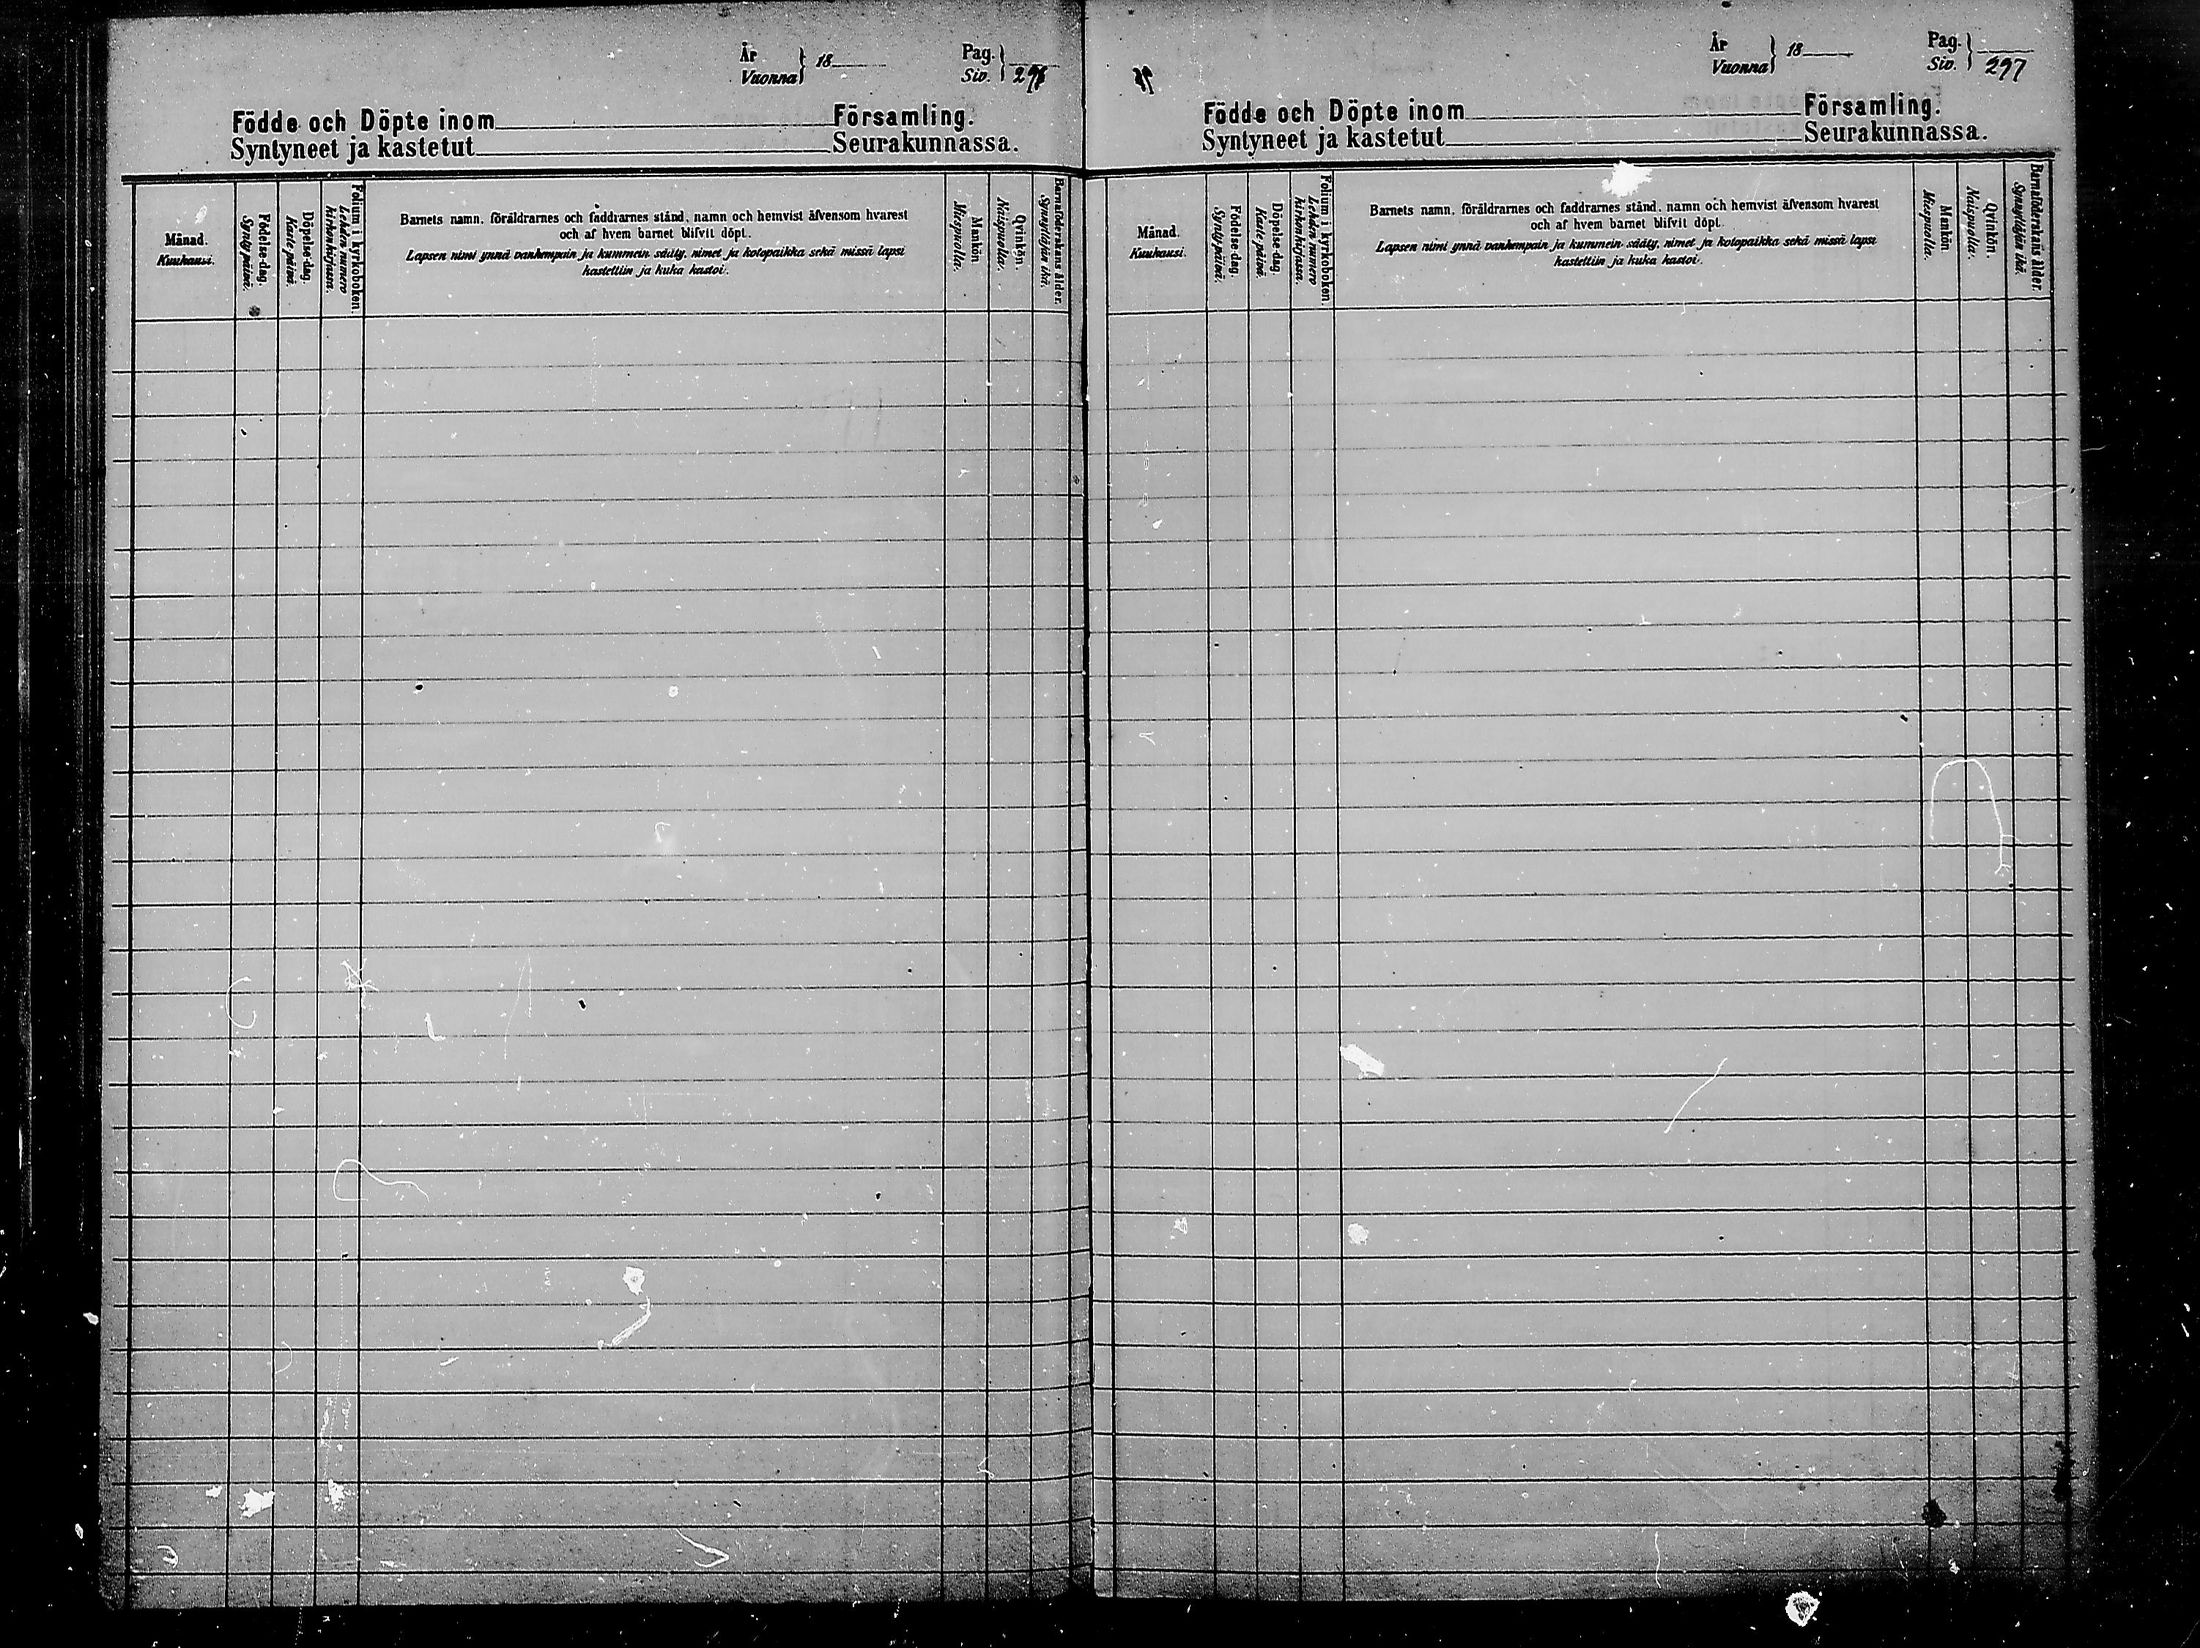 År
Vuonna } 18
Pag.
Siv. } 296
Födde och Döpte inom Församling.
Syntyneet ja kastetut Seurakunnassa.
Månad.
Kuukausi.
Födelse-dag.
Synty-päivä.
Döpelse-dag.
Kaste-päivä.
Folium i kyrkoboken.
Lehden numero
kirkonkirjassa.
Barnets namn, föräldrarnes och faddrarnes stånd, namn och hemvist äfvensom hvarest
och af hvem barnet blifvit döpt.
Lapsen nimi ynnä vanhempain ja kummein sääty, nimet ja kotopaikka sekä missä lapsi
kastettiin ja kuka kastoi.
Mankön
Miespuolta.
Qvinkön.
Naispuolta.
Barnaföderskans ålder.
Synnyttäjän ikä.
År
Vuonna } 18
Pag.
Siv. } 297
Födde och Döpte inom Församling.
Syntyneet ja kastetut Seurakunnassa.
Månad.
Kuukausi.
Födelse-dag.
Synty-päivä.
Döpelse-dag.
Kaste-päivä.
Folium i kyrkoboken.
Lehden numero
kirkonkirjassa.
Barnets namn, föräldrarnes och faddrarnes stånd, namn och hemvist äfvensom hvarest
och af hvem barnet blifvit döpt.
Lapsen nimi ynnä vanhempain ja kummein sääty, nimet ja kotopaikka sekä missä lapsi
kastettiin ja kuka kastoi.
Mankön
Miespuolta.
Qvinkön.
Naispuolta.
Barnaföderskans ålder.
Synnyttäjän ikä.